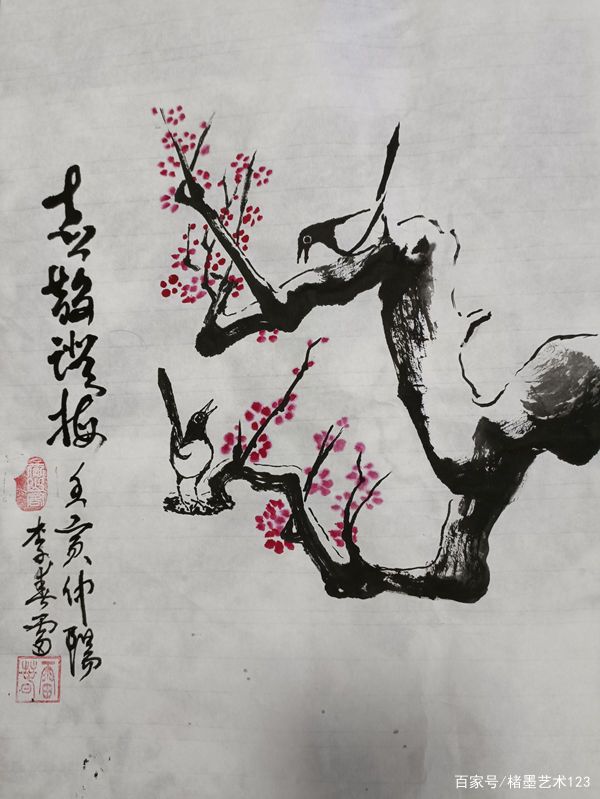 喜鹊 梅
壬寅仲陽
李春雷
百家号/楮墨艺术123